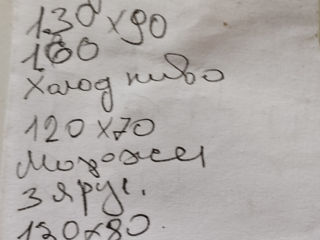 130x90
160
Холод пиво
120x70
Морожен
3 ярус.
120x80.